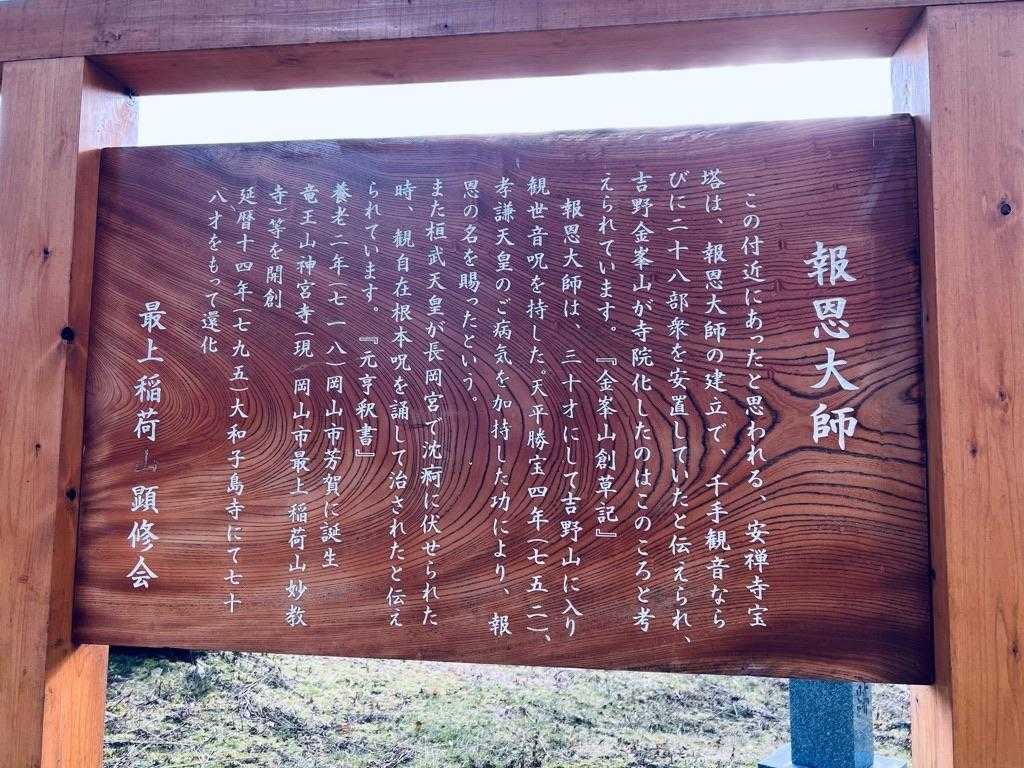 報恩大師
この付近にあったと思われる、安禅寺宝
塔は、報恩大師の建立で、千手観音なら
びに二十八部衆を安置していたと伝えられ、
吉野金峯山が寺院化したのはこのころと考
えられています。『金峯山創草記』
報恩大師は、三十才にして吉野山に入り
観世音呪を持した。天平勝宝四年(七五二)、
孝謙天皇のご病気を加持した功により、報
恩の名を賜ったという。
また桓武天皇が長岡宮で沈痾に伏せられた
時、観自在根本呪を誦して治されたと伝え
られています。『元亨釈書』
養老二年(七一八)岡山市芳賀に誕生
竜王山神宮寺(現 岡山市最上稲荷山妙教
寺)等を開創
延暦十四年(七九五)大和子島寺にて七十
八才をもって還化
最上稲荷山 顕修会